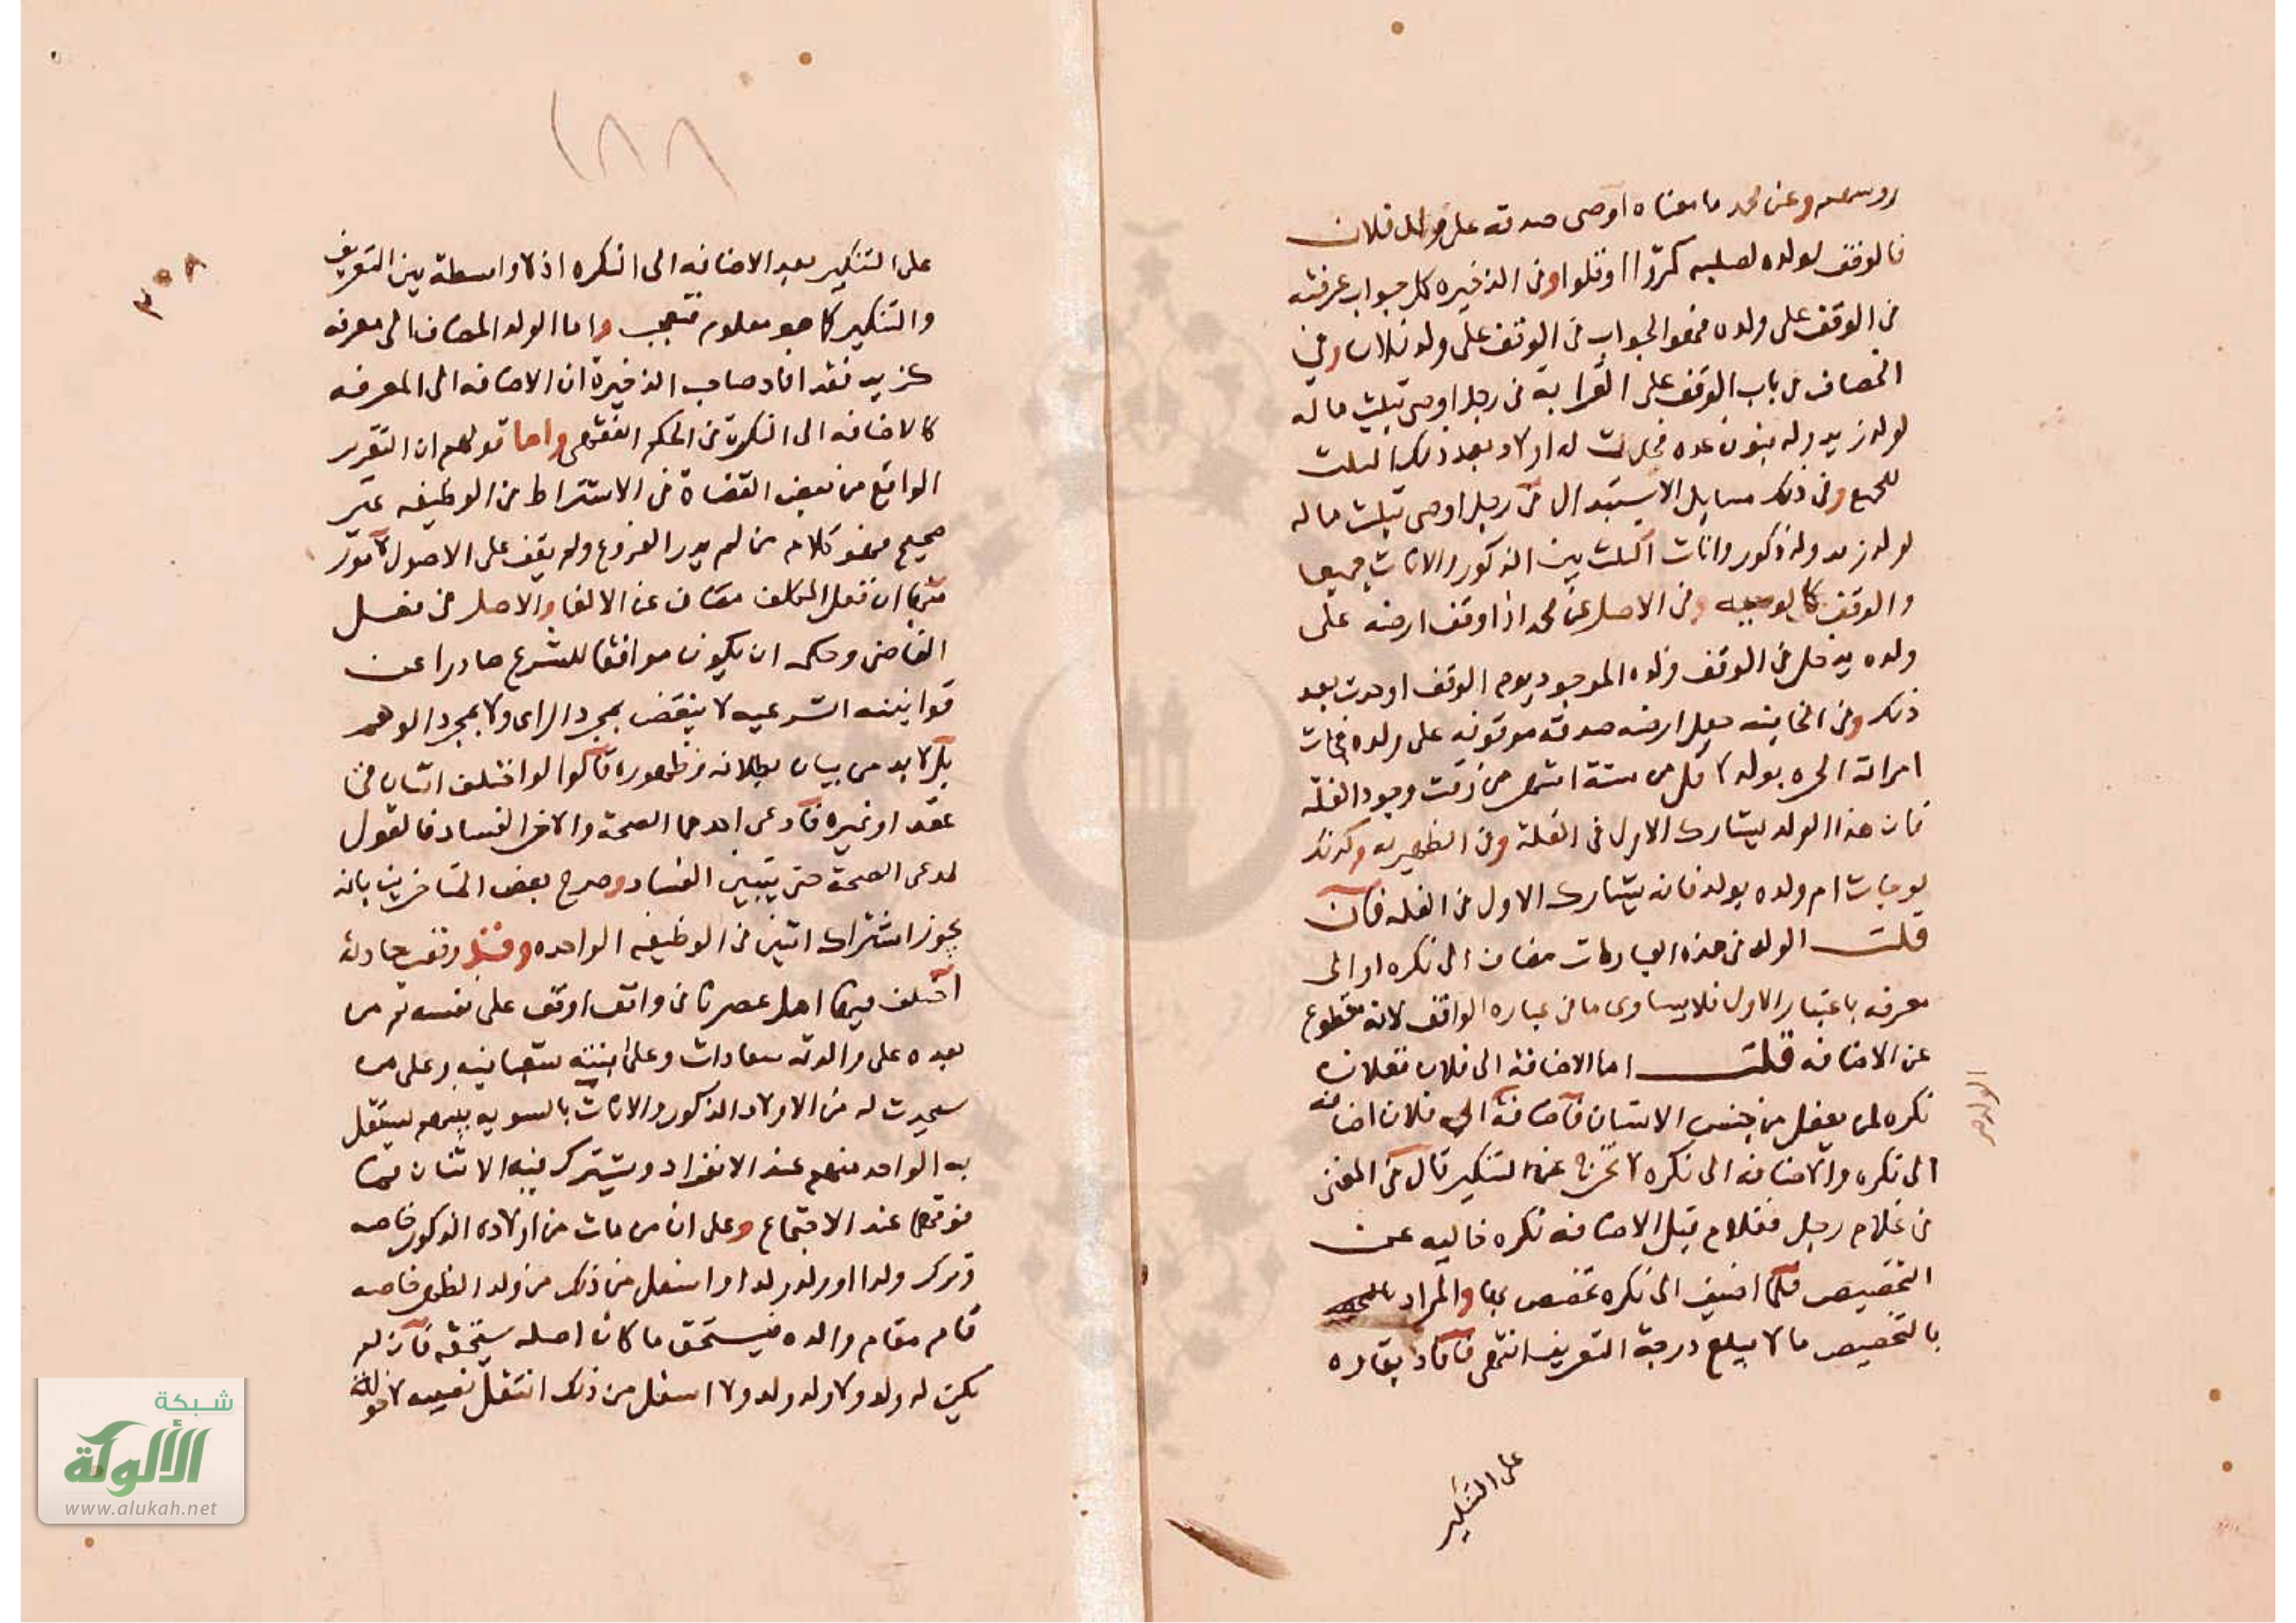 وعن محمد ما معناه اوصى صدقة على ولد فلان
فالوقف لولده لصلبه كثروا او قلوا وفى الذخيره كل جواب عرفته
فى الوقف على ولده فهو الجواب فى الوقف على ولد فلان وفى
الخصاف من باب الوقف على القرابة فى رجل اوصى بثلث ماله
لولد زيد وله بنون عده فحدث له اولاد بعد ذلك الثلث
للجميع وفى ذلك مسايل الاستبدال فى رجل اوصى بثلث ماله
لولد زيد وله ذكور واناث الثلث بين الذكور والاناث جميعا
والوقف كالوصيه وفى الاصل عن محمد اذا وقف ارضه على
ولده يدخل فى الوقف ولده الموجود يوم الوقف او حدث بعد
ذلك وفى الخانيه جعل ارضه صدقة موقوفه على ولده فجات
امراته الحره بولد لاقل من ستة اشهر من وقت وجود الغلة
فان هذا الولد يشارك الاول فى الغلة وفى الظهيريه وكذلك
لو جات ام ولده بولد فانه يشارك الاول فى الغله فان
قلت الولد فى هذه العبارات مضاف الى نكره او الى
معرفه باعتبار الاول فلا يساوى ما فى عباره الواقف لانه مقطوع
عن الاضافه قلت اما الاضافة الى فلان ففلان
نكره لمن يعقل من جنس الانسان فاضافة الى فلان اضافه
الى نكره والاضافه الى نكره لا تخرج عن التنكير قال فى المغنى
فى غلام رجل فغلام قبل الاضافه نكره خاليه عن
التخصيص فلما اضيف الى نكره تخصص بها والمراد
بالتخصيص ما لا يبلغ درجة التعريف انتهى فافاد بقاءه
على التنكير
١٨٨
٣٥٨
على التنكير بعد الاضافه الى النكره اذ لا واسطة بين التعريف
والتنكير كما هو معلوم فتعجب واما الولد المضاف الى معرفه
كزيد فقد افاد صاحب الذخيرة ان الاضافه الى المعرفه
كالاضافه الى النكرة فى الحكم انتهى واما قولهم ان التقرير
الواقع من بعض القضاة فى الاشتراط من الوظيفه غير
صحيح فهو كلام من لم يدر الفروع ولم يقف على الاصول
منها ان فعل المكلف مصان عن الالغا والاصل فى فعل
القاضى وحكمه ان يكون موافقا للشرع صادرا عن
قوانينه الشرعيه لا ينقض بمجرد الراى ولا بمجرد الوهم
بل لا بد من بيان بطلانه وظهوره قالوا لو اختلف اثنان فى
عقد او غيره فادعى احدهما الصحة والاخر الفساد فالقول
لمدعى الصحة حتى يتبين الفساد وصرح بعض المتاخرين بانه
يجوز اشتراك اثنين فى الوظيفه الواحده وقف حادثة
اختلف فيها اهل عصرنا فى واقف اوقف على نفسه ثم من
بعده على والدته سعادات وعلى ابنته وعلى من
سيحدث له من الاولاد الذكور والاناث بالسويه بينهم يستقل
به الواحد منهم عند الانفراد ويشترك فيه الاثنان فما
فوقهما عند الاجتماع وعلى ان من مات من اولاده الذكور خاصه
وترك ولدا او ولد ولد او اسفل من ذلك من ولد الظهر خاصه
قام مقام والده فيستحق ما كان اصله يستحقه فان لم
يكن له ولد ولا ولد ولد ولا اسفل من ذلك انتقل نصيبه لاخوته
شبكة
الألوكة
www.alukah.net